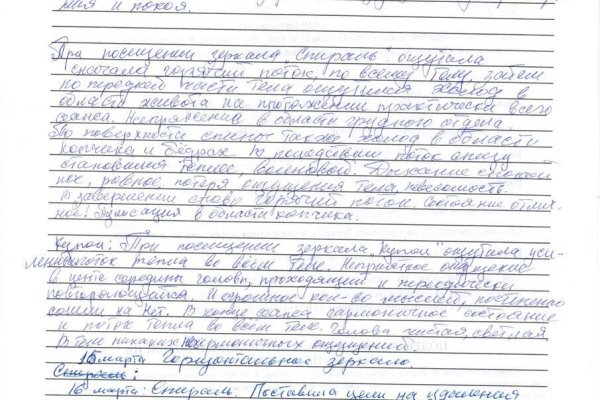 ния и покоя.
При посещении зеркала "Спираль" ощущала
сначала горячий поток, по всему телу, затем
по передней части тела ощущался холод в
области живота на протяжении практически всего
сеанса. Напряжение в области грудного отдела.
По поверхности спины также холод в области
копчика и бёдрах. В последствии поток снизу
становился теплее, волновой. Дыхание спокой
ное, ровное, потеря ощущения тела, невесомость.
В завершении снова горячий поток. Состояние отлич-
ное. Пульсация в области копчика.
Купол: При посещении зеркала "Купол" ощутила уси-
ление поток тепла во всём теле. Неприятное ощущение
в центе середины головы, проходящий и переодически
повторяющийся. И огромное кол-во мыслей, постепенно
сошли на нет. В конце сеанса гармоничное состояние
и поток тепла во всём теле. Голова чистая, светлая
В теле никаких негармоничных ощущений.
15 марта Горизонтальное зеркало.
Спираль:
16 марта: Спираль. Поставила цели на удаления